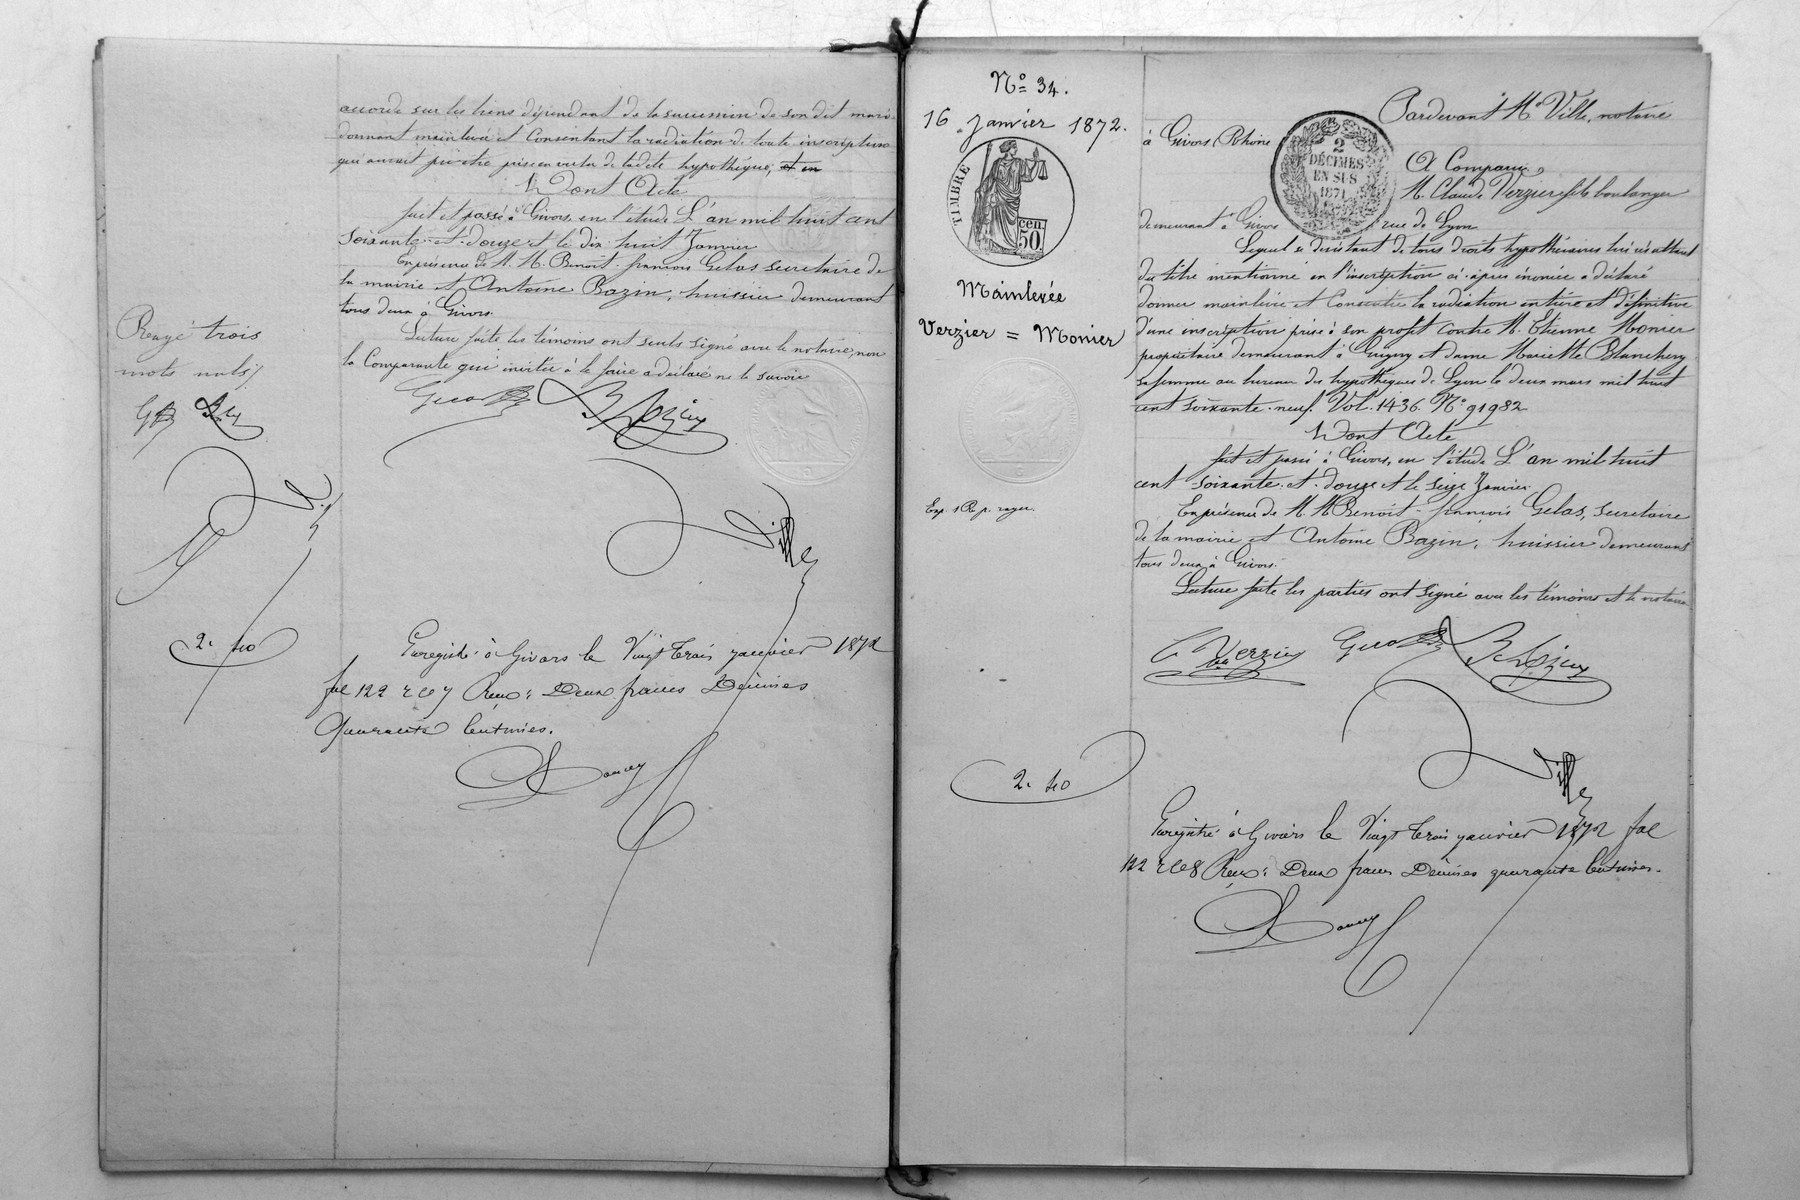 accorde sur les biens dépendant de la succession de son dit mari
donnant mainlevée et Consentant la radiation de toute inscription
qui aurait pu être prise en vertu de ladite hypothèque, et en
Dont Acte
fait et passé à Givors, en l'étude L'an mil huit cent
soixante et douze et le dix huit Janvier
En présence de M. M. Benoit-françois Gelas secrétaire de
la mairie et Antoine Bazin, huissier demeurant
tous deux à Givors.
Lecture faite les témoins ont seuls signé avec le notaire, non
la Comparante qui invitée à le faire a déclaré ne le savoir
Rayé trois
mots nuls
Gelas Bazin
Ville
2. 40
Enregistré à Givors le Vingt trois janvier 1872
fol 122 r c 7 Reçu : Deux francs Décimes
quarante Centimes.
No 34.
16 Janvier 1872.
TIMBRE
50 cen.
Mainlevée
Verzier = Monier
Exp. 1 R p. rayer.
2. 40
Pardevant Me Ville, notaire
à Givors, Rhône
2
DÉCIMES
EN SUS
1871
A Comparu,
M. Claude Verzier fils boulanger
demeurant à Givors rue de Lyon
Lequel se désistant de tous droits hypothécaires lui résultant
du titre mentionné en l'inscription ci-après énoncée a déclaré
donner mainlevée et Consentir la radiation entière et définitive
d'une inscription prise à son profit contre M. Etienne Monier
propriétaire demeurant à Grigny et dame Mariette Blanchery
sa femme au bureau des hypothèques de Lyon le deux mars mil huit
cent soixante-neuf. Vol. 1436 No 91982
Dont Acte
fait et passé à Givors, en l'étude L'an mil huit
cent soixante et douze et le seize Janvier
En présence de M. M Benoit-françois Gelas, secrétaire
de la mairie et Antoine Bazin, huissier demeurant
tous deux à Givors.
Lecture faite les parties ont signé avec les témoins et le notaire
C Verzier Gelas Bazin
Ville
Enregistré à Givors le Vingt trois janvier 1872 fol
122 r c 8 Reçu : Deux francs Décimes quarante Centimes.